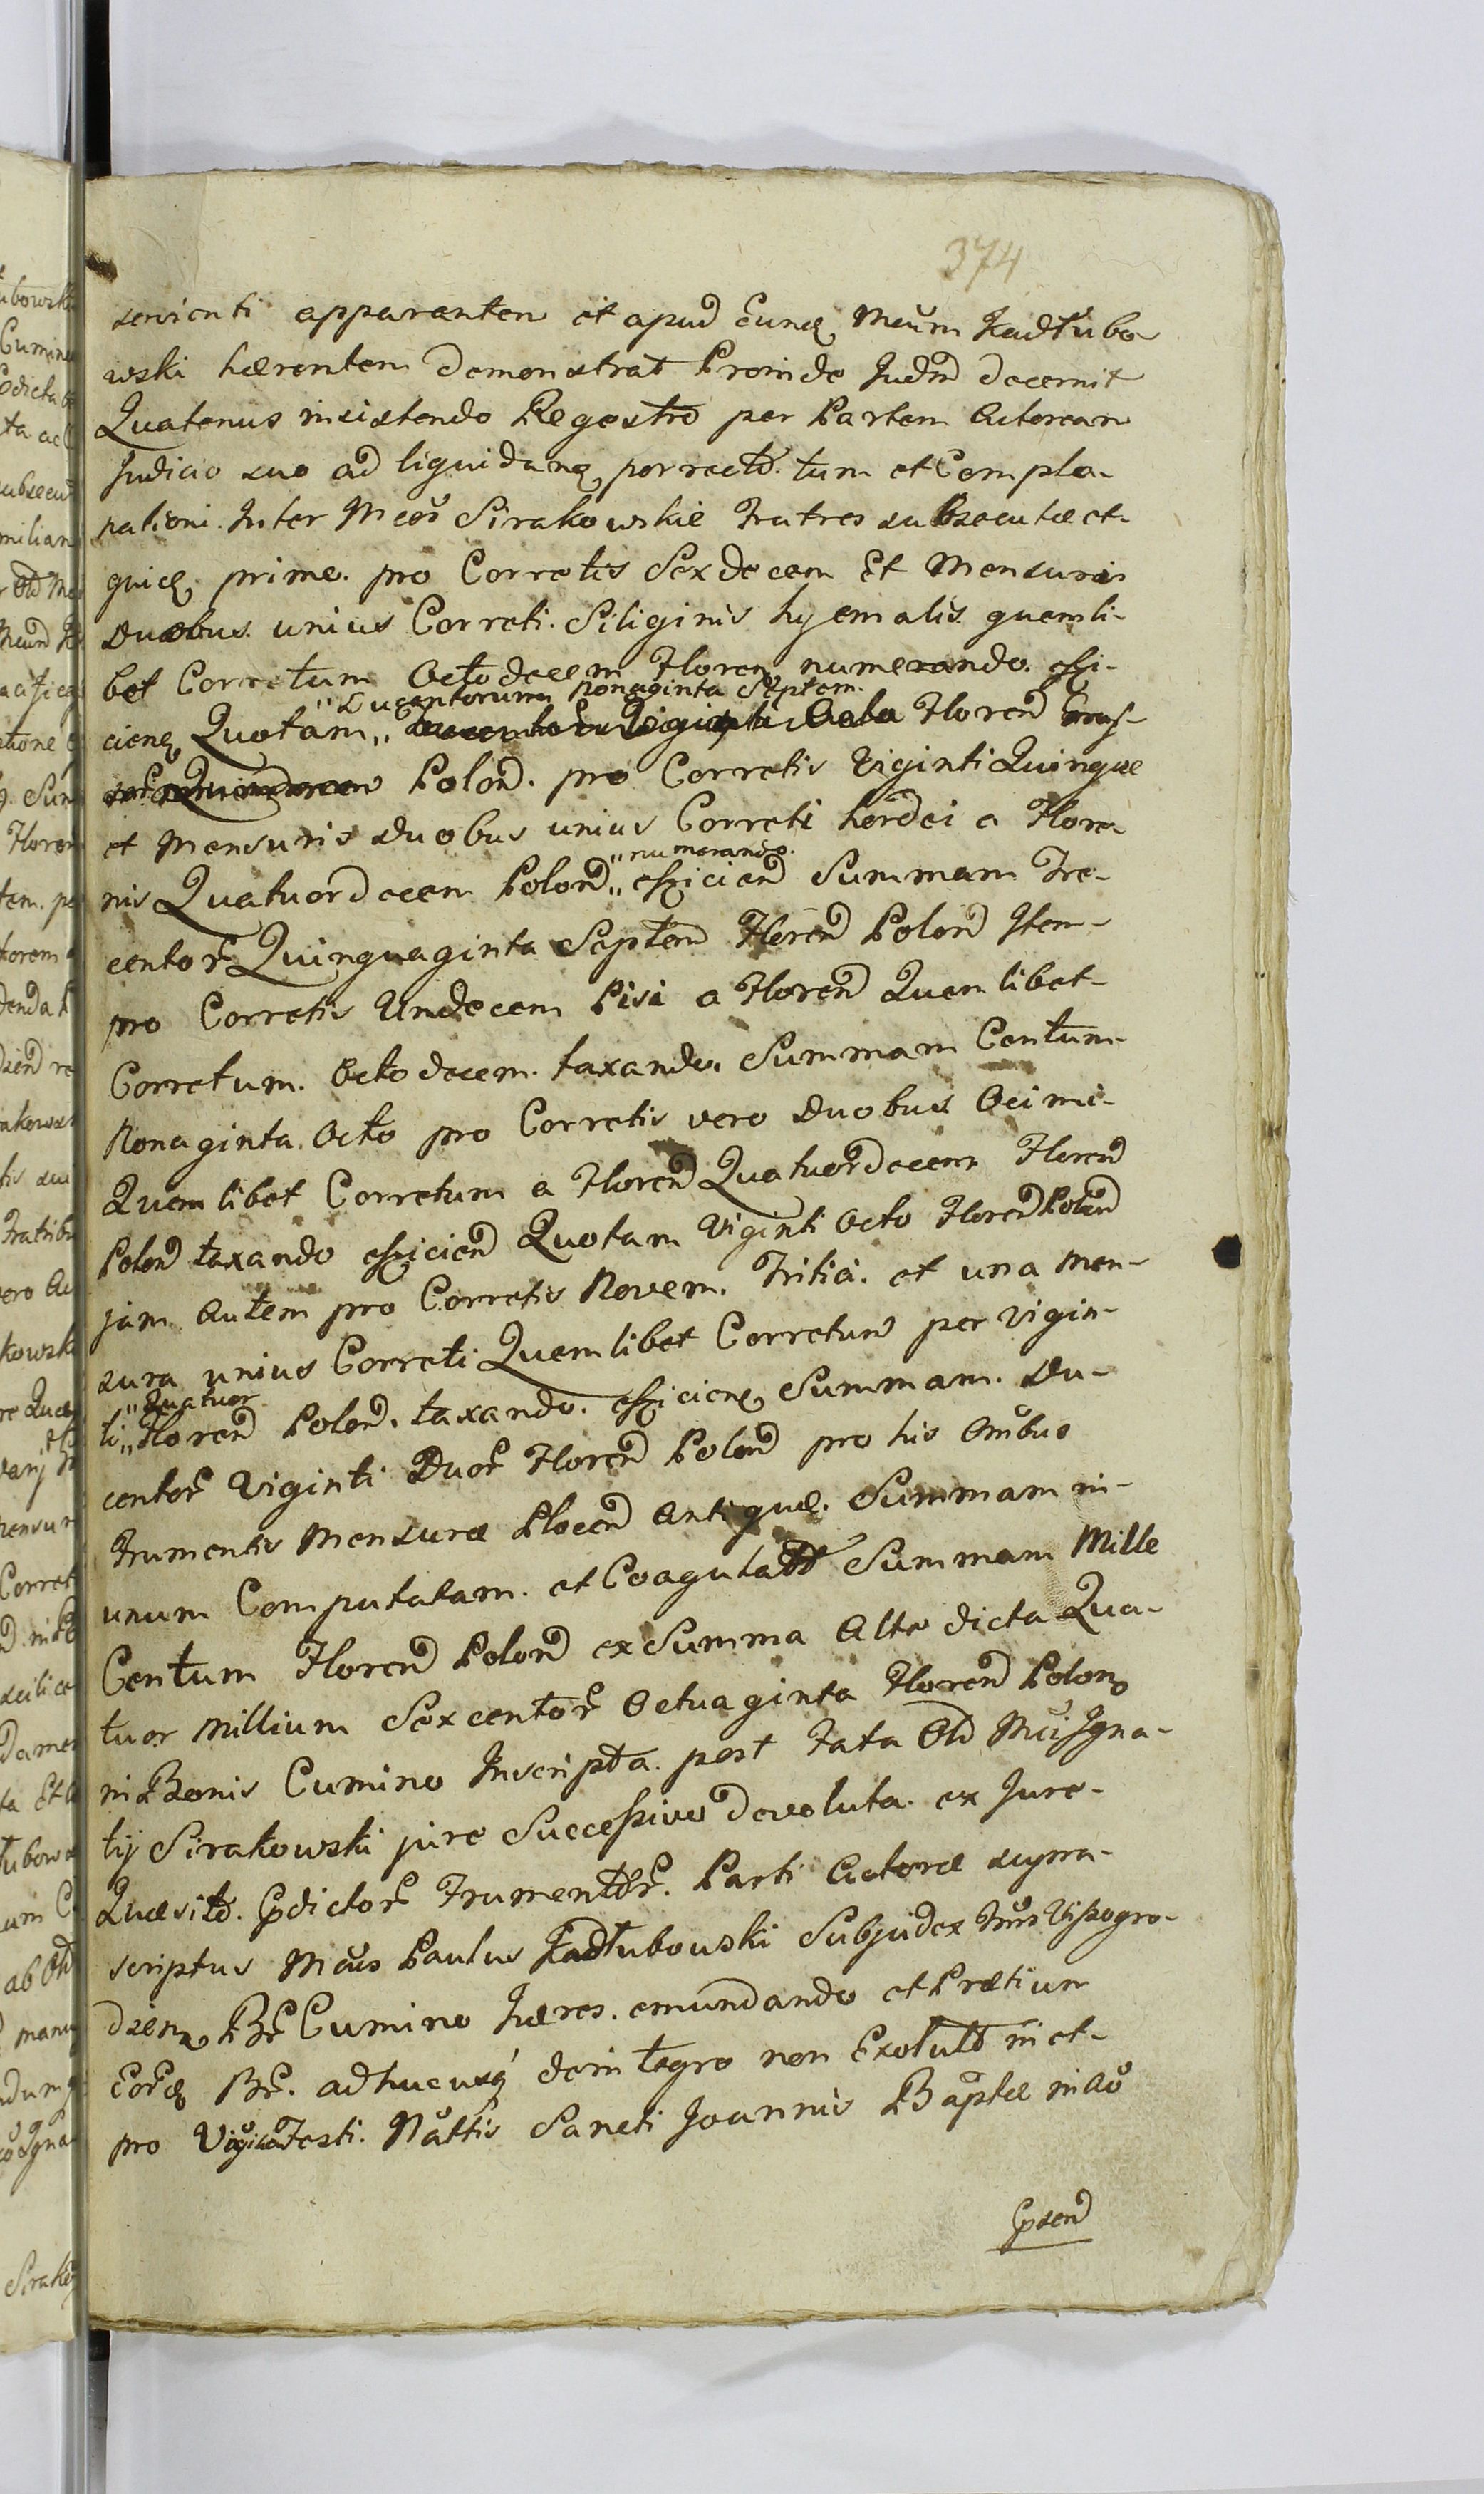 374
servienti apparenten et apud Eund Mcum Kadłubo-
wski hærentem demonstrat Proinde Judm decernit
Quatenus insistendo Regestro per Partem Actoream
Judicio suo ad liquidand porrecto. tum et Compla-
nationi. Inter Mcos Sirakowskie Fratres subsecutæ et
quidē. prime. pro Corretis Sexdecem Et Mensuris
Duobus. unius Correti. Siliginis hyemalis quemli-
bet Corretum Octodecem Floren numerando. effi-
"Ducentorum Nonaginta Septem.
ciend Quotam " Floren
Polond. pro Corretis Viginti Quinque
et Mensuris Duobus unius Correti hordei a Flore-
"numerando.
nis Quatuordecem Polond " efficiend Summam Tre-
centor Quinquaginta Septem Floren Polond Item-
pro Corretis Undecem Pisi a Floren Quemlibet-
Corretum. Octodecem. taxando. Summam Centum-
Nonaginta. Octo pro Corretis vero Duobus Ocimi-
Quemlibet Corretum a Floren Quatuordecem Floren
Polond taxando efficiend Quotam Viginti Octo Floren Polond
jam Autem pro Corretis Novem. Tritici. et una Men-
sura unius Correti Quemlibet Corretum per Vigin-
"Quatuor
ti " Floren Polond. taxando. efficiend Summam. Du-
centor Viginti Duor Floren Polond pro his Omibus
Frumentis Mensuræ Plocen Antiquæ. Summam in-
unum Computatam. et Coagulatā Summam Mille
Centum Floren Polond ex Summa Alte dicta Qua-
tuor Millium Sexcentor Octuaginta Floren Polon
in Bonis Cumino Inscripta. post Fata Olim Mci Igna-
tij Sirakowski jure Successivo devoluta. ex Jure-
Quæsito. Pdictor Frumentor. Parti Actoreæ supra-
scriptus Mcus Paulus Kadłubowski Subjudex Trris Wyszogro-
dzien Br Cumino Hæres. emundando et Prætium
Eord Br. adhucusq de integro non Exolutō in et-
pro Vigilia Festi. Nattis Sancti Joannis Baptæ in Ao
Psen